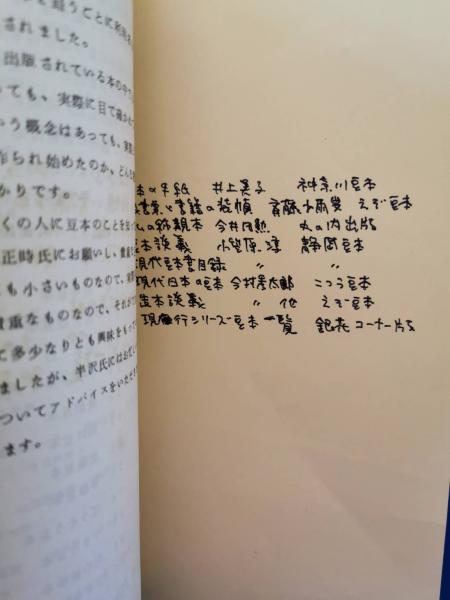 を追うごとに
されました。
出版されている本の中で
っても、実際に目で確かめ
いう概念はあっても、実際
作られ始めたのか、どん
かりです。
くの人に豆本のことを
正時氏にお願いし、貴重
も小さいものなので、実際
貴重なものなので、それが
に多少なりとも興味をもって
ましたが、半沢氏には
ついてアドバイスをいただき
ます。
本の手紙 井上 子 神奈川豆本
書票と書籍の装幀 斎藤 えぞ豆本
の豆本 今井田勲 丸の内出版
豆本談義 小笠原淳 静岡豆本
現代豆本書目録 〃 〃
現代日本の豆本 今村秀太郎 こつう豆本
造本談義 〃 他 えぞ豆本
現行シリーズ豆本一覧 銀花コーナー版